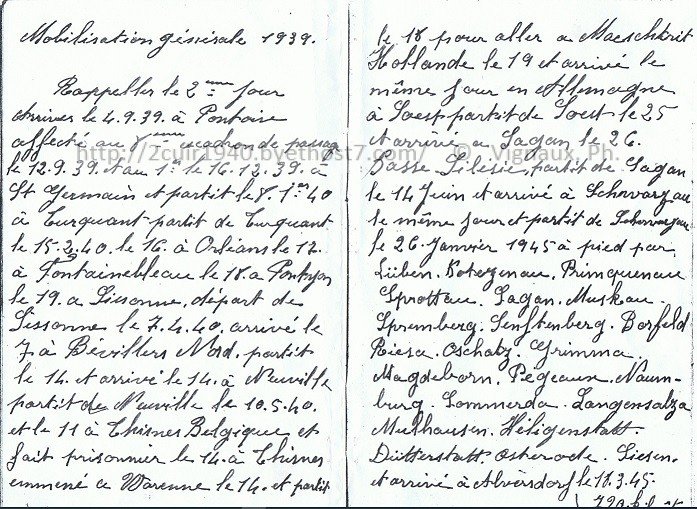 Mobilisation générale 1939.
Rappeller le 2ème jour
arriver le 4.9.39 à Pontoise
affecté au ème escadron de passag
le 12.9.39 et au 1er le 16.12.39 à
St Germain et partit le 8.1er 40
à Turquant partit de Turquant
le 15.2.40. le 16. à Orléans le 17.
à Fontainebleau le 18. a
le 19. a Sissonne, départ de
Sissonne le 7.4.40. arrivé le
7 à Bévillers Nord. partit
le 14. et arrivé le 14. à Neuville
partit de Neuville le 10.5.40.
et le 11 à Thisnes Belgique et
fait prisonnier le 14. à Thisnes
emmené a Warenne le 14. et partit
le 18 pour aller a Maeschtrit
Hollande le 19 et arrivé le
même jour en Allemagne
à Soest partit de Soest le 25
et arrivé a Sagan le 26.
Basse Silésie, partit de Sagan
le 14 Juin et arrivé à Schwarzau
le même jour et partit de Schwarzau
le 26 Janvier 1945 à pied par
Lüben. Kotzenau. Primquenau
Sprottau. Sagan. Muskau.
Spremberg. Senftenberg. Borfeld
Riesa. Oschatz. Grimma.
Magdeborn. Pegeaun. Naum-
burg. Sommerda. Langensalza
Mulhausen. Heiligenstatt.
Dutterstatt. osterode. Giesen.
et arrivé à Alversdorf le 11.3.45.
http://2cuir1940.byethost7.com/ © Vignaux, Ph.